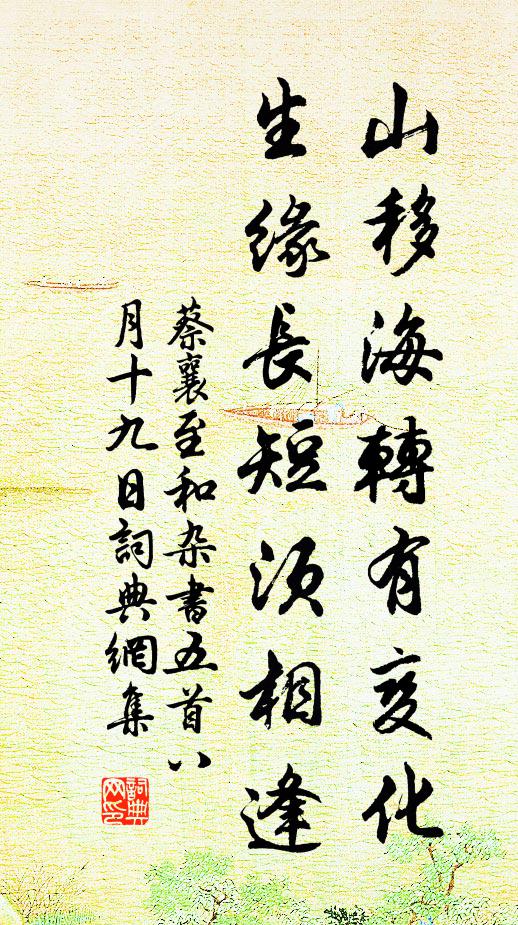 山移海轉有变化
生緣長短须相逢
蔡襄至和杂書五首八
月十九日詞典網集
詞典网印